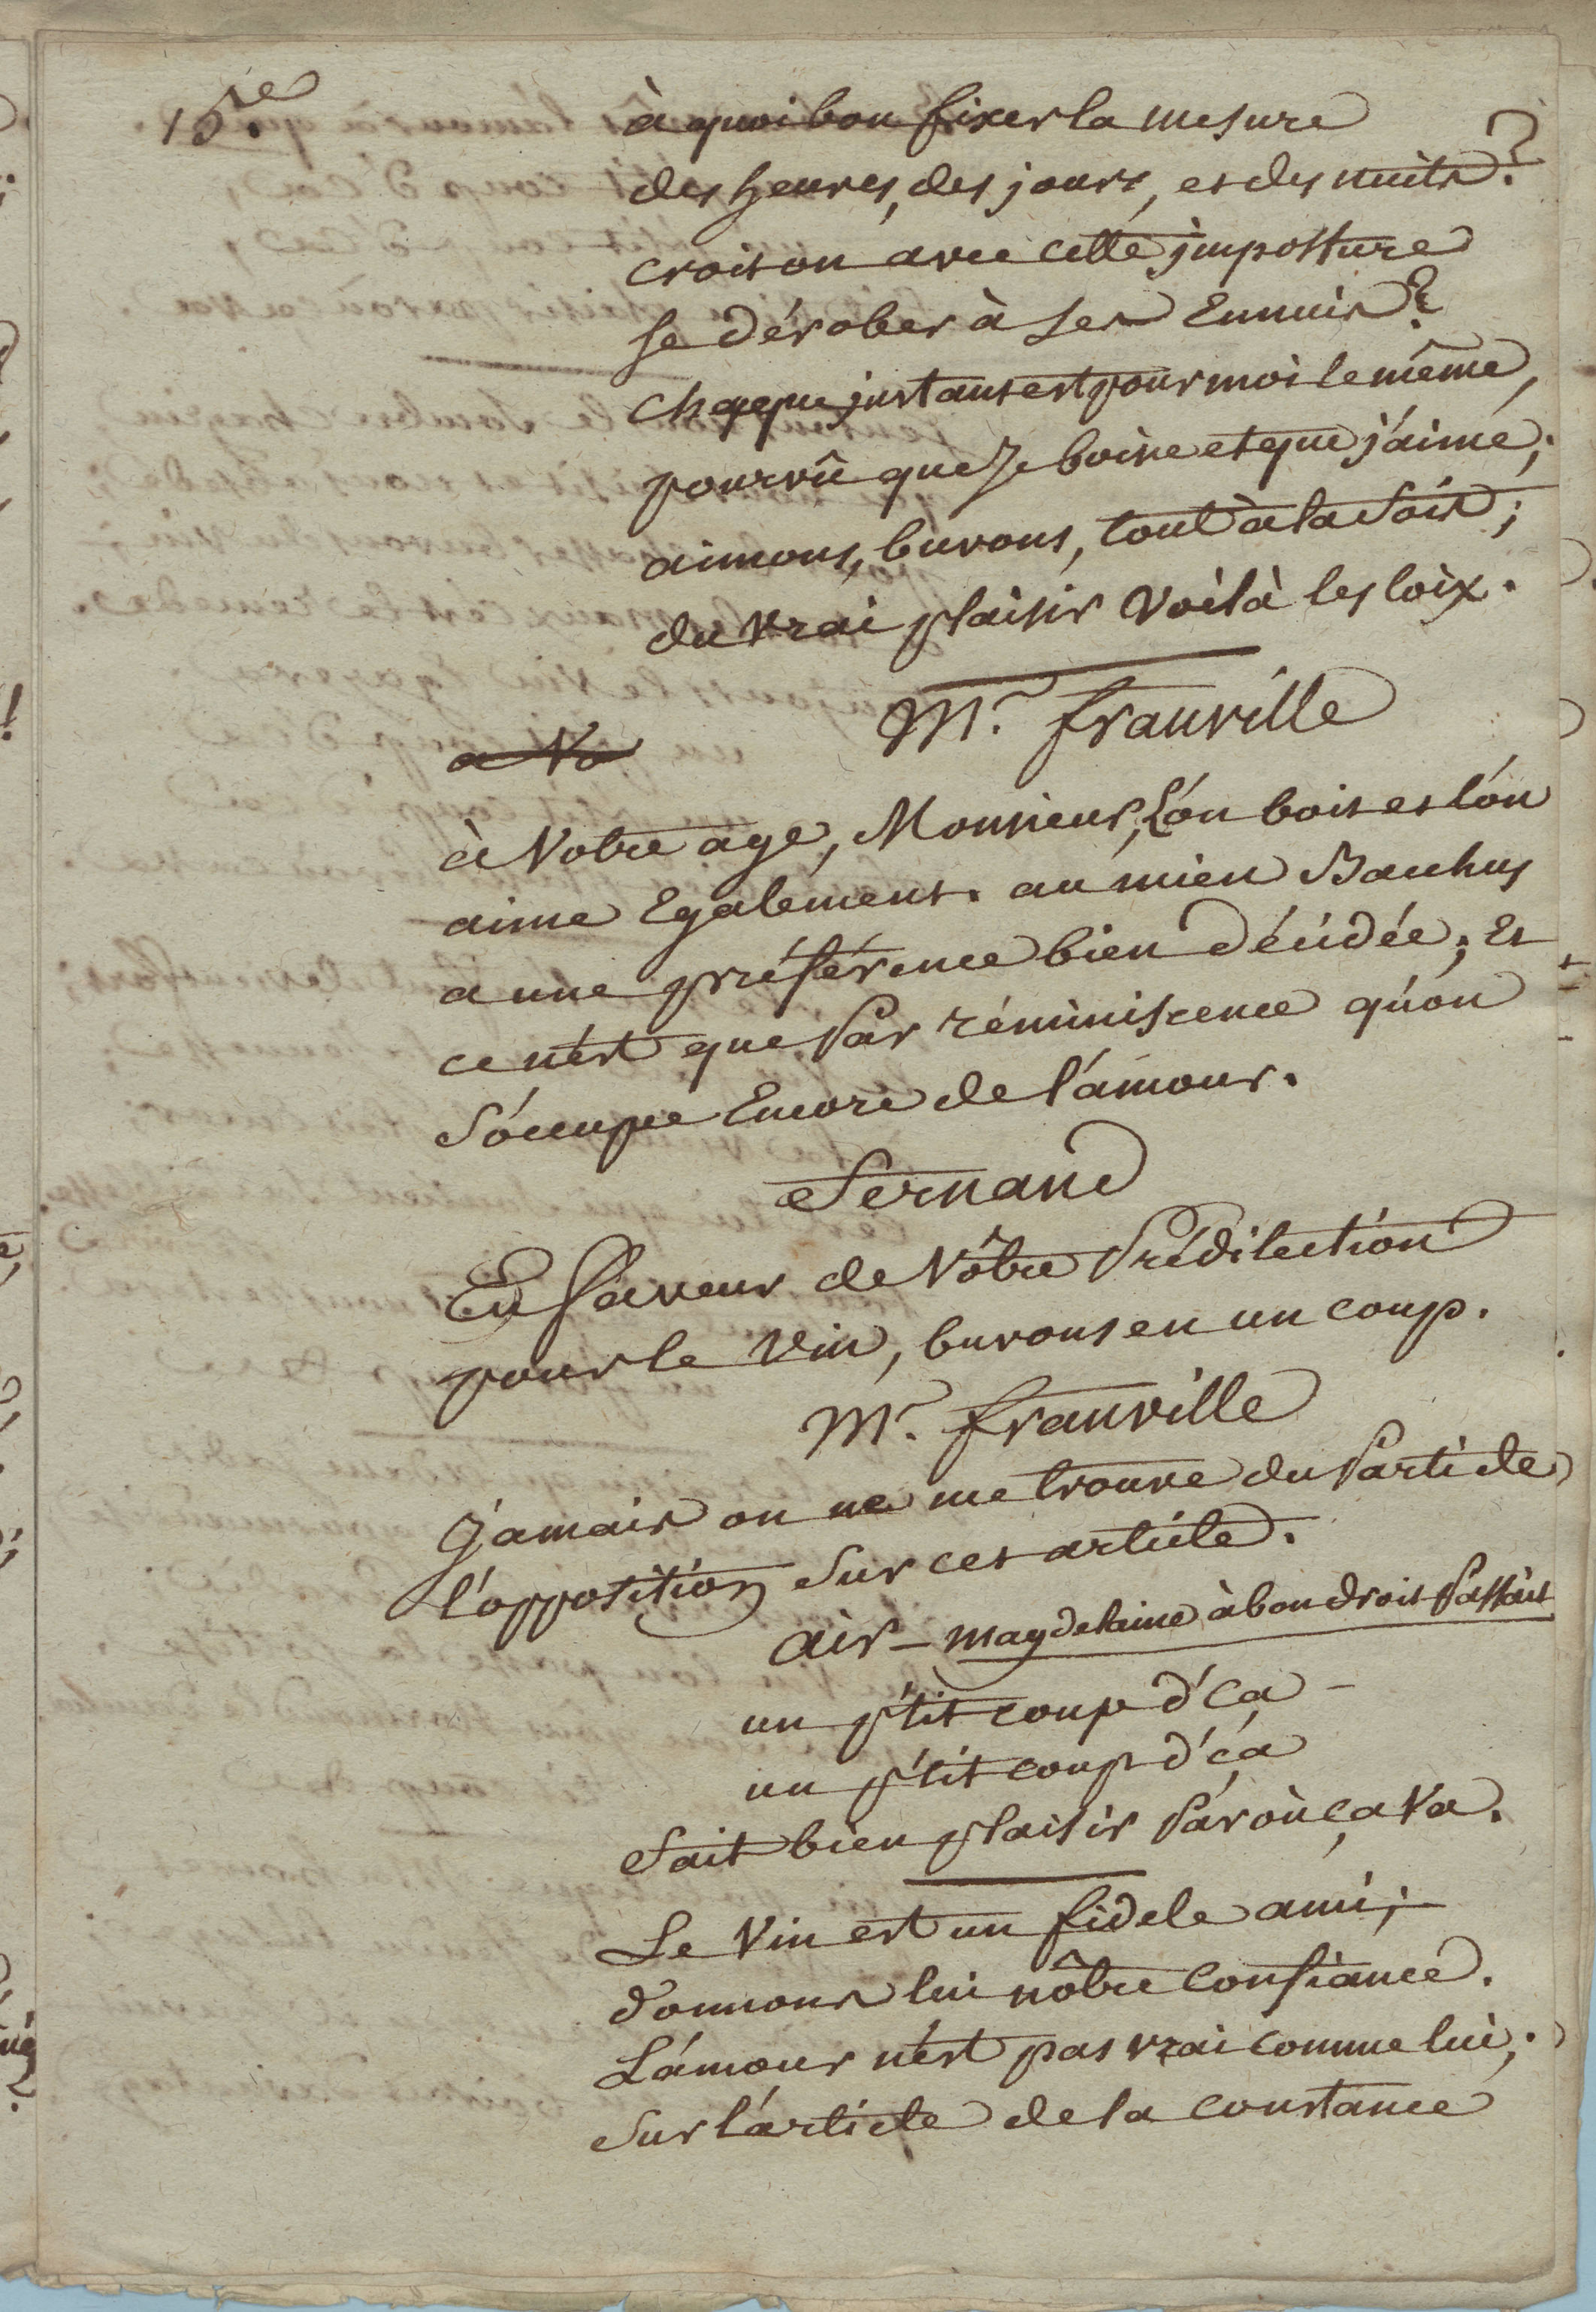 15.e
à quoi bon fixer la mesure
des heures, des jours, et des nuits?
croit on avec cette imposture
se dérober à ses Ennuis?
chaque instant est pour moi le même,
pourvû que je boive et que j'aime;
aimons, buvons, tout à la fois;
du vrai plaisir voilà les loix.
Mr. franville
a Vo
à Votre age, Monsieur, l'on boit et l'on
aime Egalement. au mien Bacchus
a une préférence bien décidée; Et
ce n'est que par réminiscence qu'on
s'occupe Encore de l'amour.
fernand
En faveur de Vôtre prédilection
pour le vin, buvons en un coup.
Mr. franville
Jamais on ne me trouve du parti de
l'opposition sur cet article.
air - magdelaine à bon droit passait
un p'tit coup d'ca -
un p'tit coup d'ça
fait bien plaisir par où ça va.
Le Vin est un fidele ami;
donnons lui nôtre confiance.
L'amour n'est pas vrai comme lui;
sur l'article de la constance